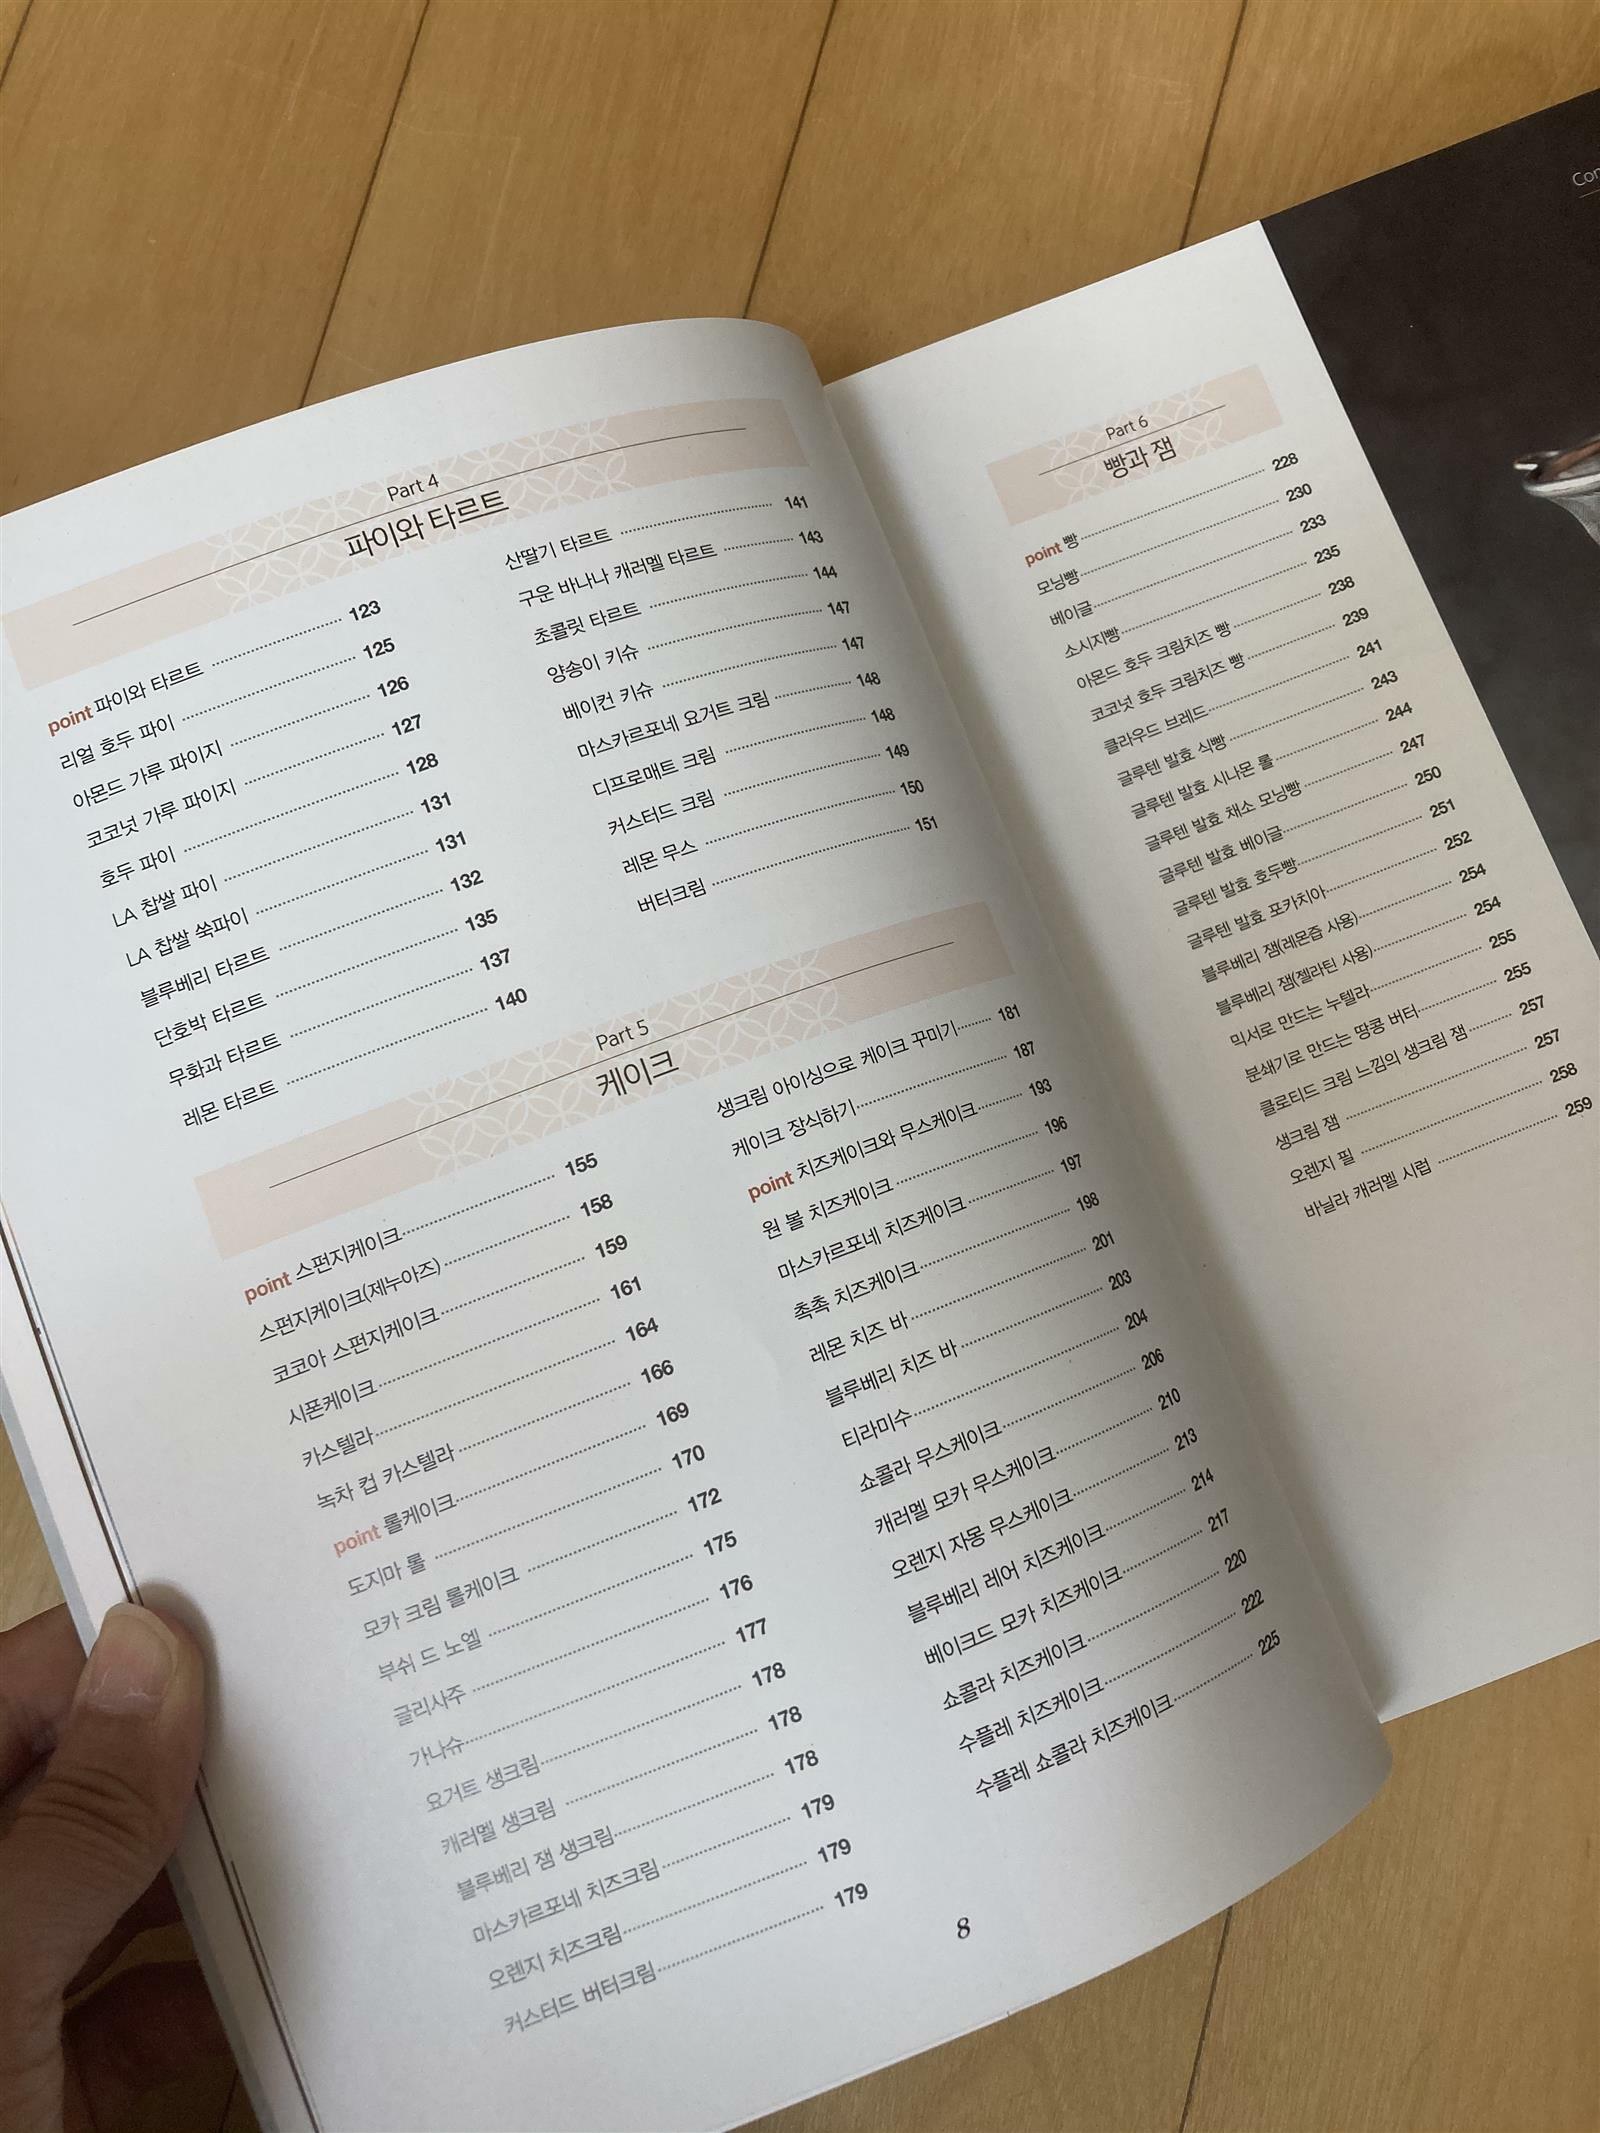 Part 4
파이와 타르트
point 파이와 타르트 123
리얼 호두 파이 125
아몬드 가루 파이지 126
코코넛 가루 파이지 127
호두 파이 128
LA 찹쌀 파이 131
LA 찹쌀 쑥파이 131
블루베리 타르트 132
단호박 타르트 135
무화과 타르트 137
레몬 타르트 140
산딸기 타르트 141
구운 바나나 캐러멜 타르트 143
초콜릿 타르트 144
양송이 키슈 147
베이컨 키슈 147
마스카르포네 요거트 크림 148
디프로매트 크림 148
커스터드 크림 149
레몬 무스 150
버터크림 151
Part 5
케이크
point 스펀지케이크 155
스펀지케이크(제누아즈) 158
코코아 스펀지케이크 159
시폰케이크 161
카스텔라 164
녹차 컵 카스텔라 166
point 롤케이크 169
도지마 롤 170
모카 크림 롤케이크 172
부쉬 드 노엘 175
글리사주 176
가나슈 177
요거트 생크림 178
캐러멜 생크림 178
블루베리 잼 생크림 178
마스카르포네 치즈크림 179
오렌지 치즈크림 179
커스터드 버터크림 179
생크림 아이싱으로 케이크 꾸미기 181
케이크 장식하기 187
point 치즈케이크와 무스케이크 193
원 볼 치즈케이크 196
마스카르포네 치즈케이크 197
촉촉 치즈케이크 198
레몬 치즈 바 201
블루베리 치즈 바 203
티라미수 204
쇼콜라 무스케이크 206
캐러멜 모카 무스케이크 210
오렌지 자몽 무스케이크 213
블루베리 레어 치즈케이크 214
베이크드 모카 치즈케이크 217
쇼콜라 치즈케이크 220
수플레 치즈케이크 222
수플레 쇼콜라 치즈케이크 225
8
Part 6
빵과 잼
point 빵 228
모닝빵 230
베이글 233
소시지빵 235
아몬드 호두 크림치즈 빵 238
코코넛 호두 크림치즈 빵 239
클라우드 브레드 241
글루텐 발효 식빵 243
글루텐 발효 시나몬 롤 244
글루텐 발효 채소 모닝빵 247
글루텐 발효 베이글 250
글루텐 발효 호두빵 251
글루텐 발효 포카치아 252
블루베리 잼(레몬즙 사용) 254
블루베리 잼(젤라틴 사용) 254
믹서로 만드는 누텔라 255
분쇄기로 만드는 땅콩 버터 255
클로티드 크림 느낌의 생크림 잼 257
생크림 잼 257
오렌지 필 258
바닐라 캐러멜 시럽 259